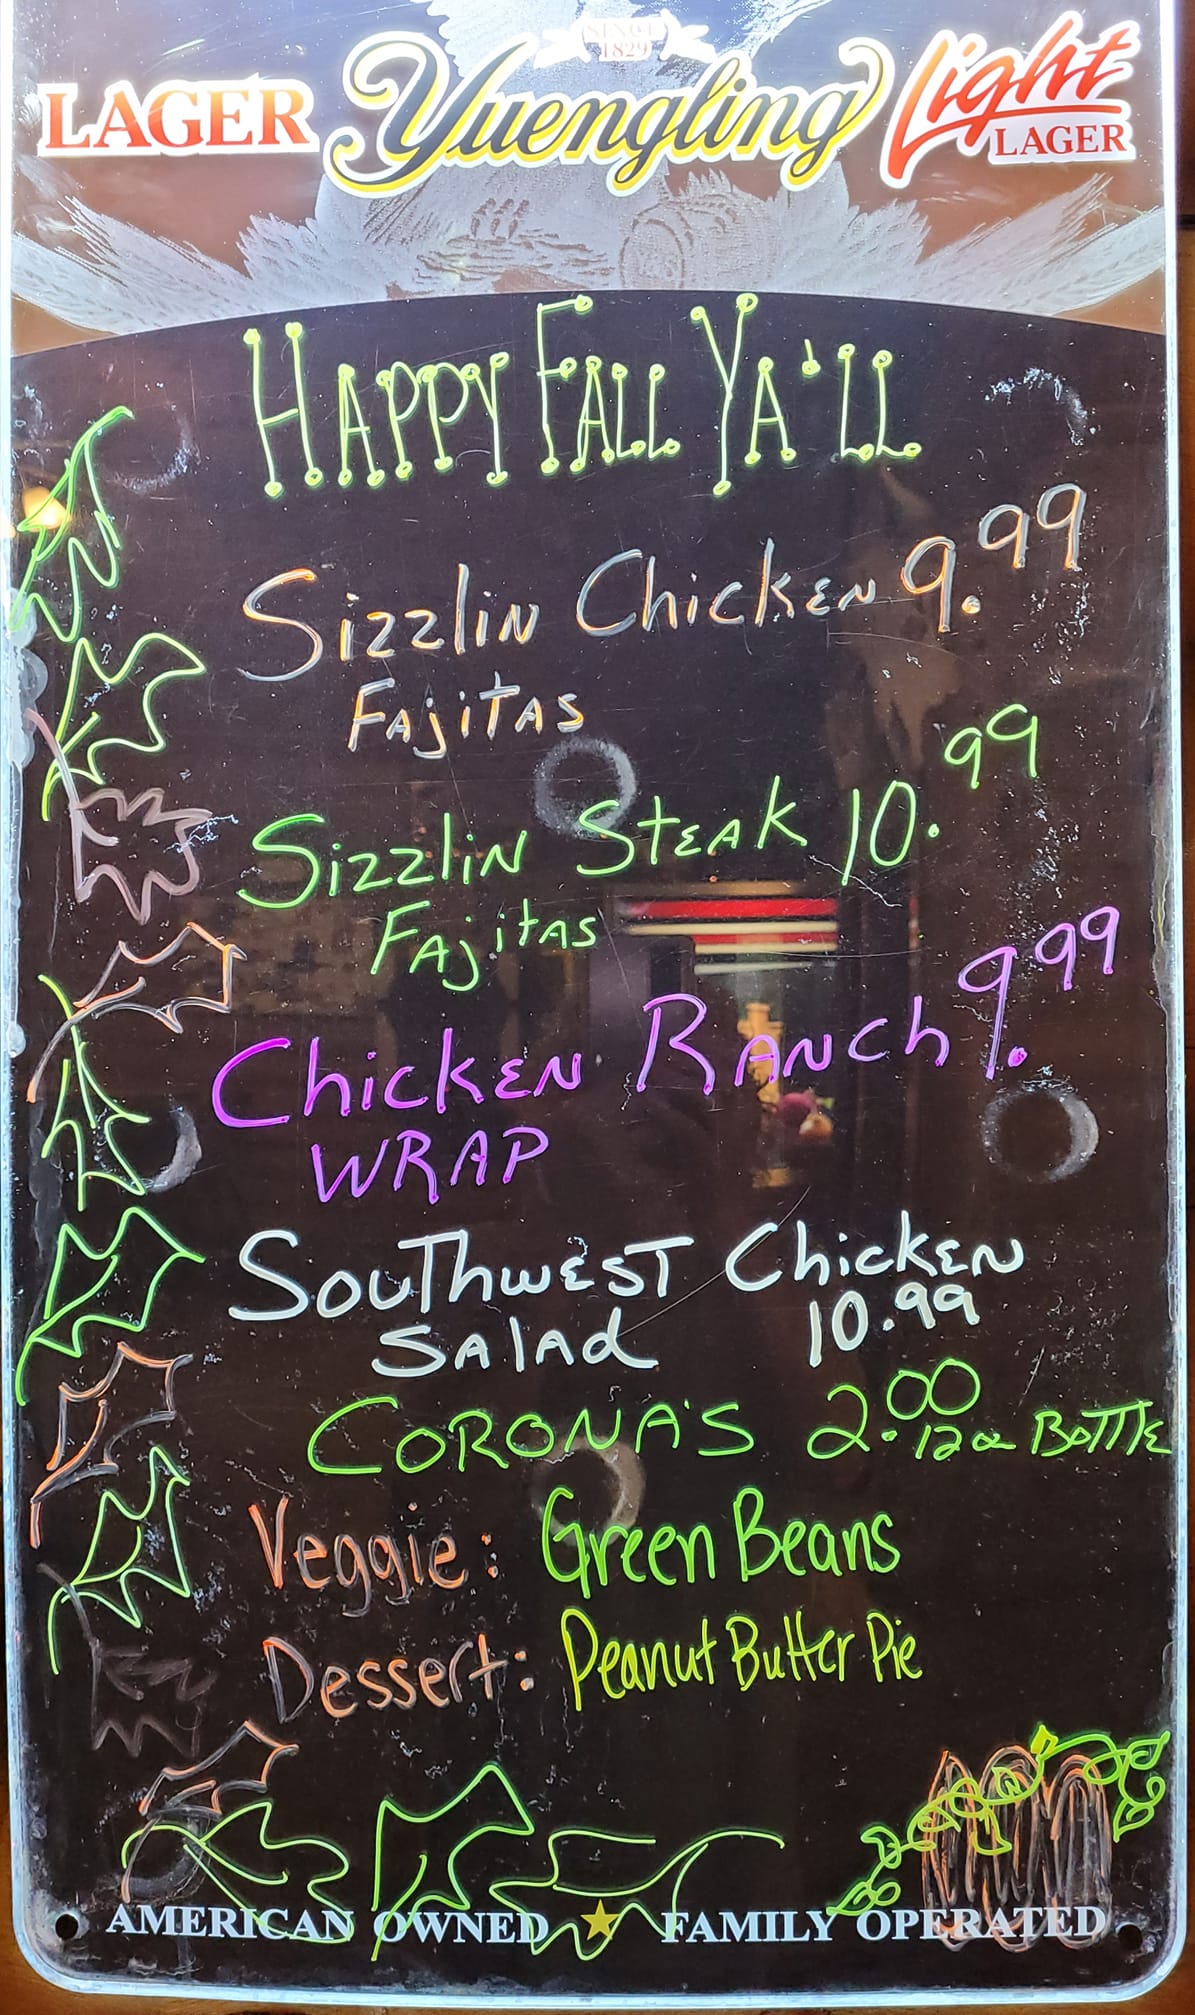 SINCE 1829
LAGER Yuengling Light LAGER
HAPPY FALL YA'LL
SIZZLIN CHICKEN 9.99
FAJITAS
SIZZLIN STEAK 10.99
FAJITAS
CHICKEN RANCH 9.99
WRAP
SOUTHWEST CHICKEN
SALAD 10.99
CORONA'S 2.00 12oz BOTTLE
Veggie: Green Beans
Dessert: Peanut Butter Pie
AMERICAN OWNED FAMILY OPERATED